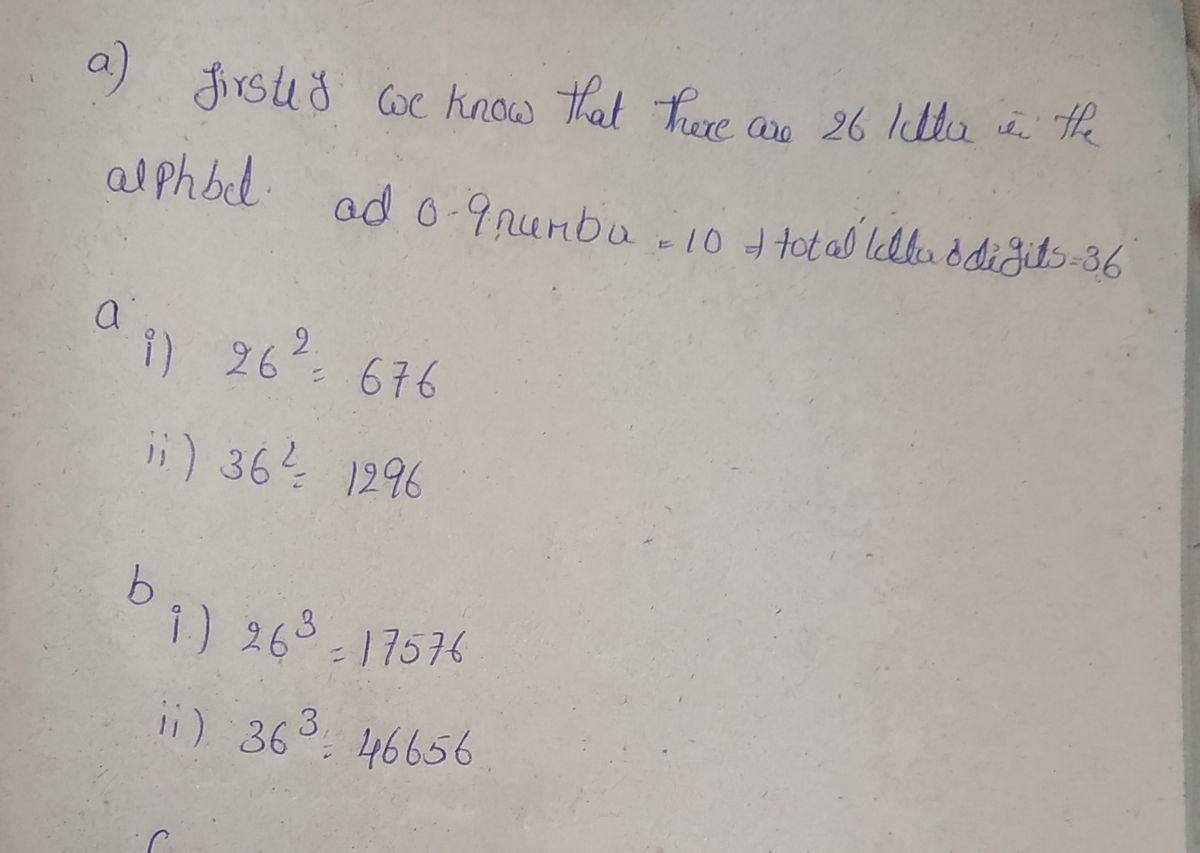 a) firstly we know that there are 26 letter in the
alphbet. ad 0-9 number = 10 ⇒ total letter & digits = 36
a i) 26² = 676
ii) 36² = 1296
b i) 26³ = 17576
ii) 36³ = 46656